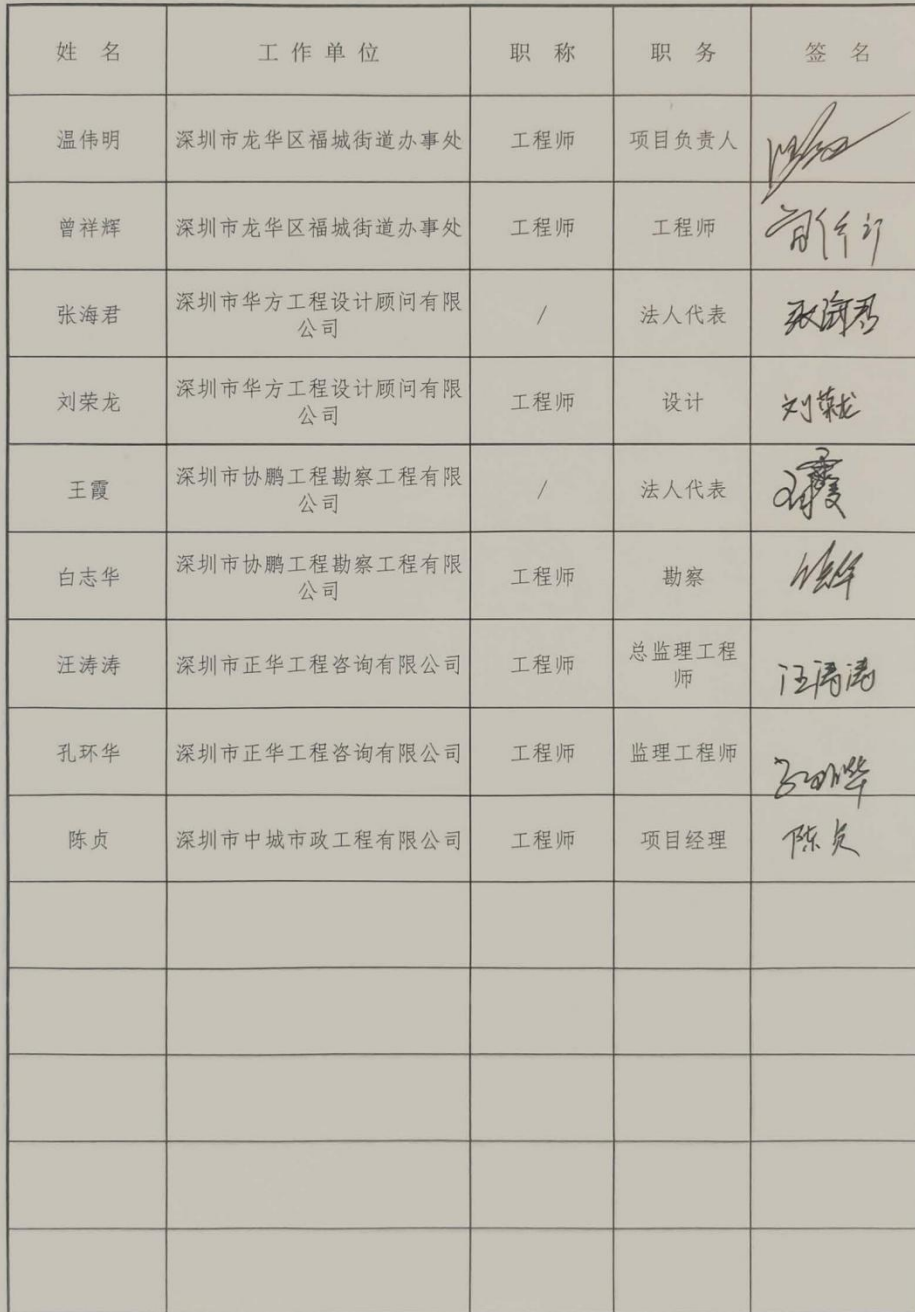 姓 名 工 作 单 位 职 称 职 务 签 名
温伟明 深圳市龙华区福城街道办事处 工程师 项目负责人
曾祥辉 深圳市龙华区福城街道办事处 工程师 工程师
张海君 深圳市华方工程设计顾问有限 / 法人代表 张海君
公司
刘荣龙 深圳市华方工程设计顾问有限 工程师 设计 刘荣龙
公司
王霞 深圳市协鹏工程勘察工程有限 / 法人代表 王霞
公司
白志华 深圳市协鹏工程勘察工程有限 工程师 勘察
公司
汪涛涛 深圳市正华工程咨询有限公司 工程师 总监理工程 汪涛涛
师
孔环华 深圳市正华工程咨询有限公司 工程师 监理工程师
陈贞 深圳市中城市政工程有限公司 工程师 项目经理 陈贞